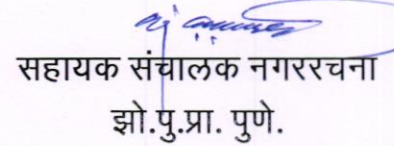 सहायक संचालक नगररचना
झो.पु.प्रा. पुणे.